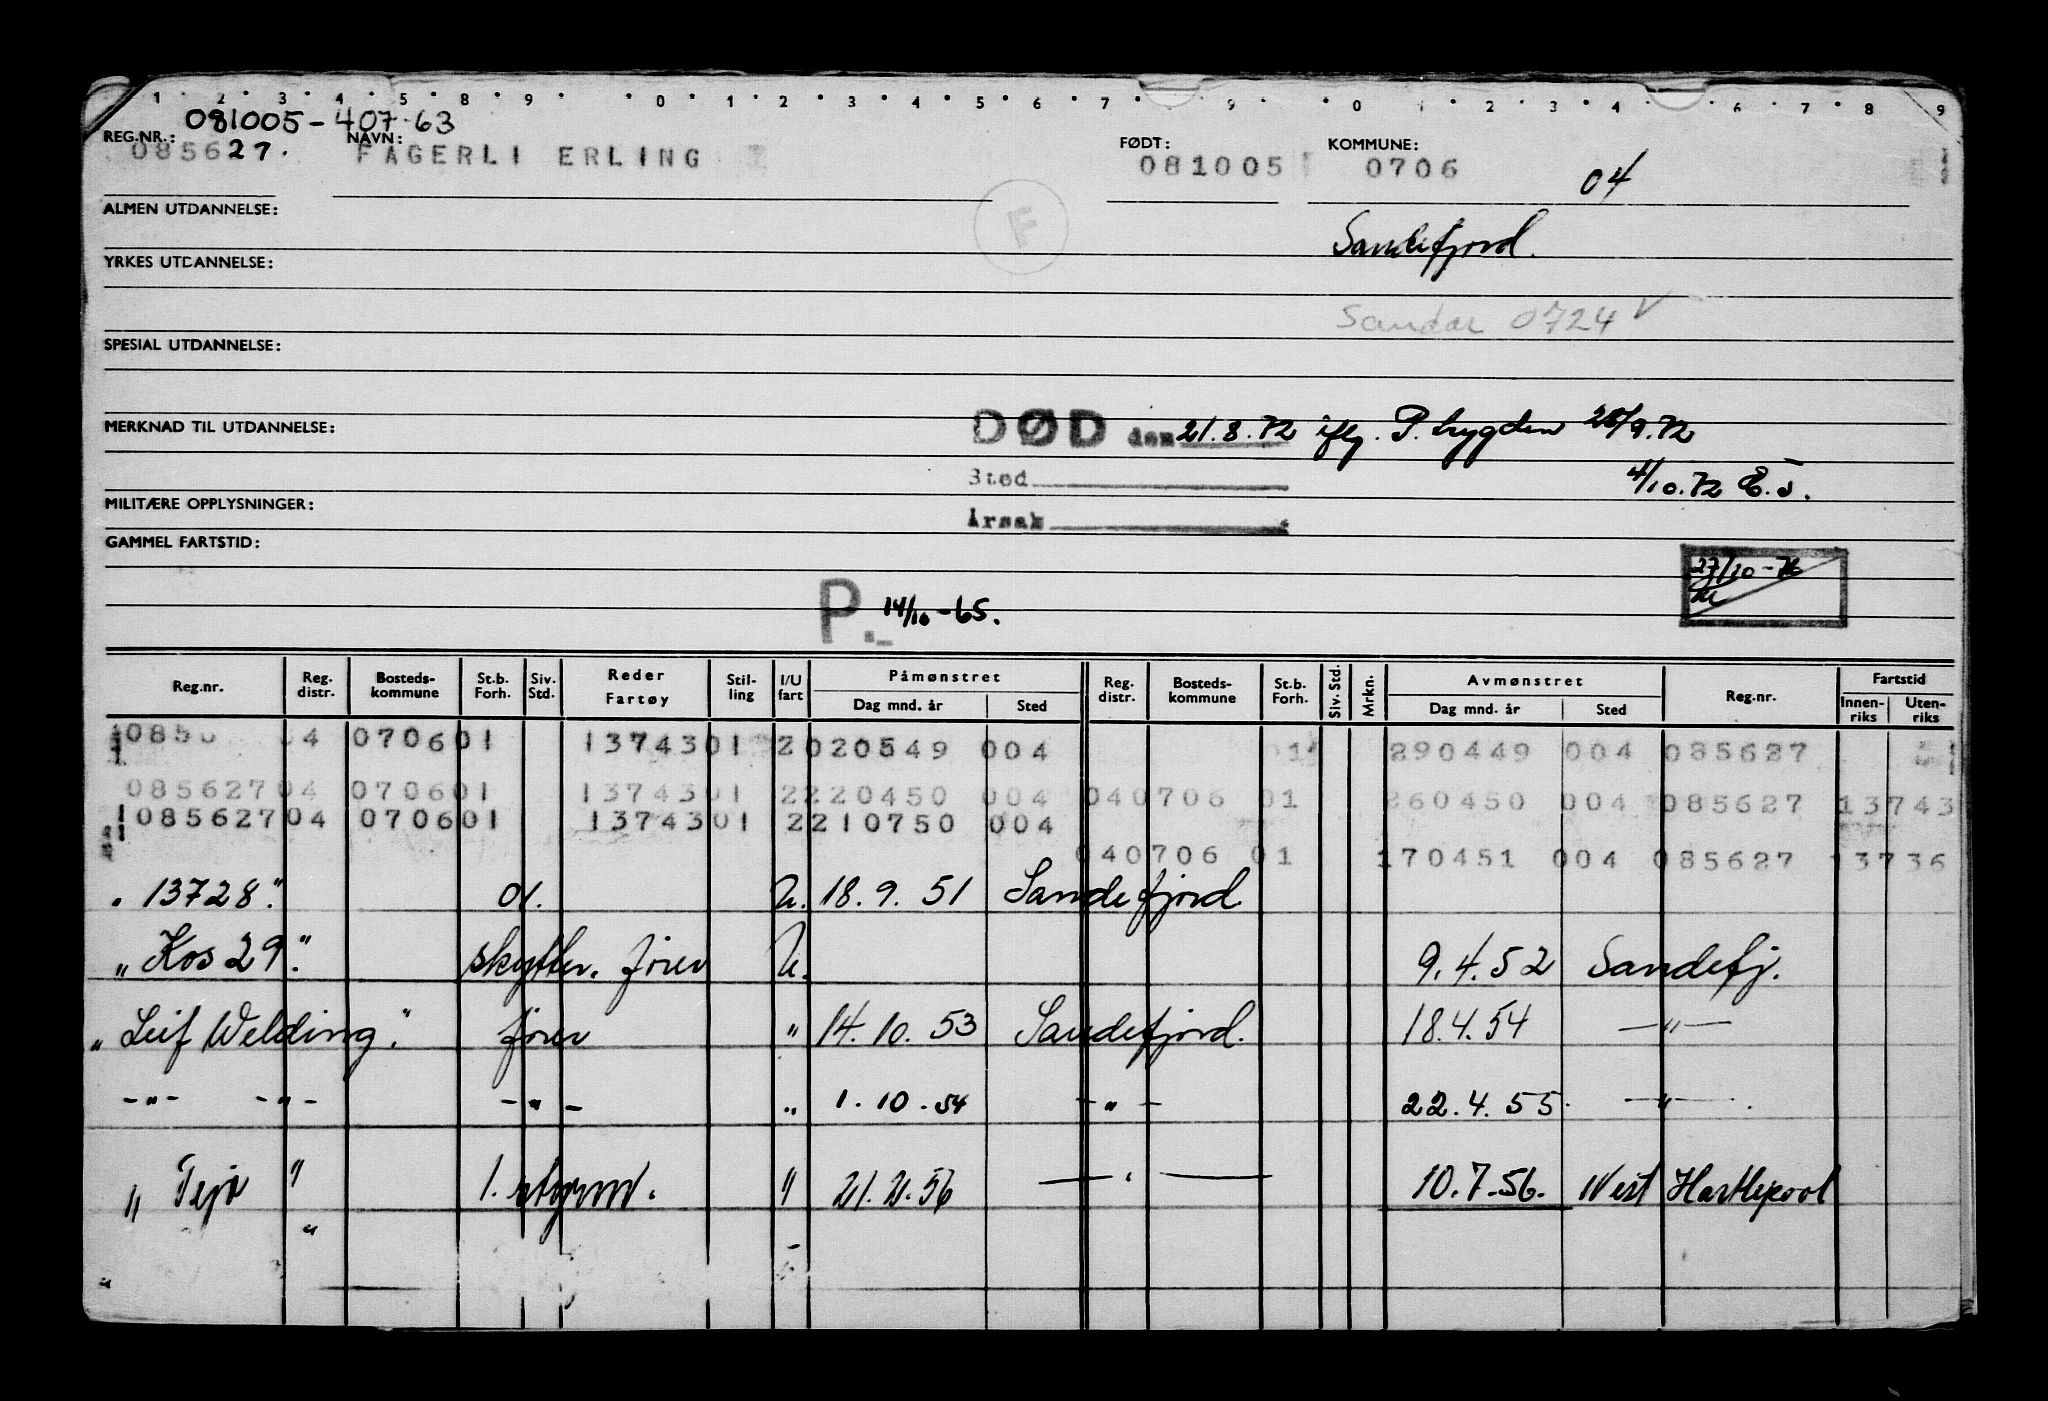 1 2 3 4 5 8 9 0 1 2 3 4 5 6 7 9 0 1 2 3 4 6 7 8 9
081005-407-63
REG.NR.: NAVN: FØDT: KOMMUNE:
085627. FAGERLI ERLING 081005 0706
04
ALMEN UTDANNELSE:
F
Sandefjord.
YRKES UTDANNELSE:
Sandar 0724 V
SPESIAL UTDANNELSE:
MERKNAD TIL UTDANNELSE:
DØD den 21.8.72 iflg. P. trygden 28/9.72
Sted
4/10.72
MILITÆRE OPPLYSNINGER:
Årsak
GAMMEL FARTSTID:
27/10-76
P. 14/10-65.
Reg.nr. Reg. distr. Bosteds- kommune St.b. Forh. Siv. Std. Reder Fartøy Stil- ling I/U fart Påmønstret Dag mnd. år Sted Reg. distr. Bosteds- kommune St.b. Forh. Siv. Std. Mrkn. Avmønstret Dag mnd. år Sted Reg.nr. Fartstid Innen- riks Uten- riks
085 04 0706 01 13743 01 2 020549 004 01 290449 004 085627
085627 04 0706 01 13743 01 2 220450 004 04 0706 01 260450 004 085627 13743
085627 04 0706 01 13743 01 2 210750 004
04 0706 01 170451 004 085627 13736
" 13728." 01. U. 18.9.51 Sandefjord.
"Kos 29." skytter. fører U. 9.4.52 Sandefj.
"Leif Welding." fører " 14.10.53 Sandefjord. 18.4.54 —"—
-"- -"- -"- " 1.10.54 -"- 22.4.55. —"—.
" Teje " 1. styrm. " 21.2.56 —"— 10.7.56. West Hartlepool